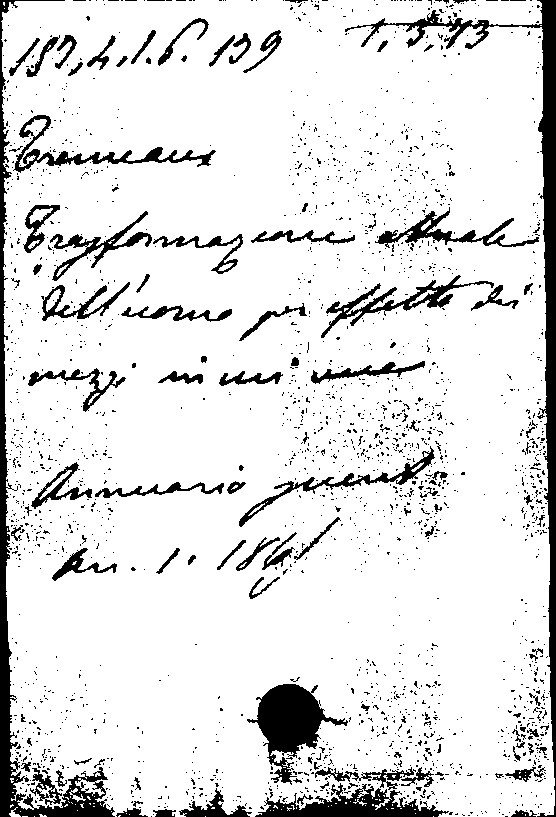 187,4,1.6. 139
1.3.73
Tremeaux
Trasformazione attuale
dell'uomo per effetto dei
mezzi in cui vive
Annuario
An. 1. 1861